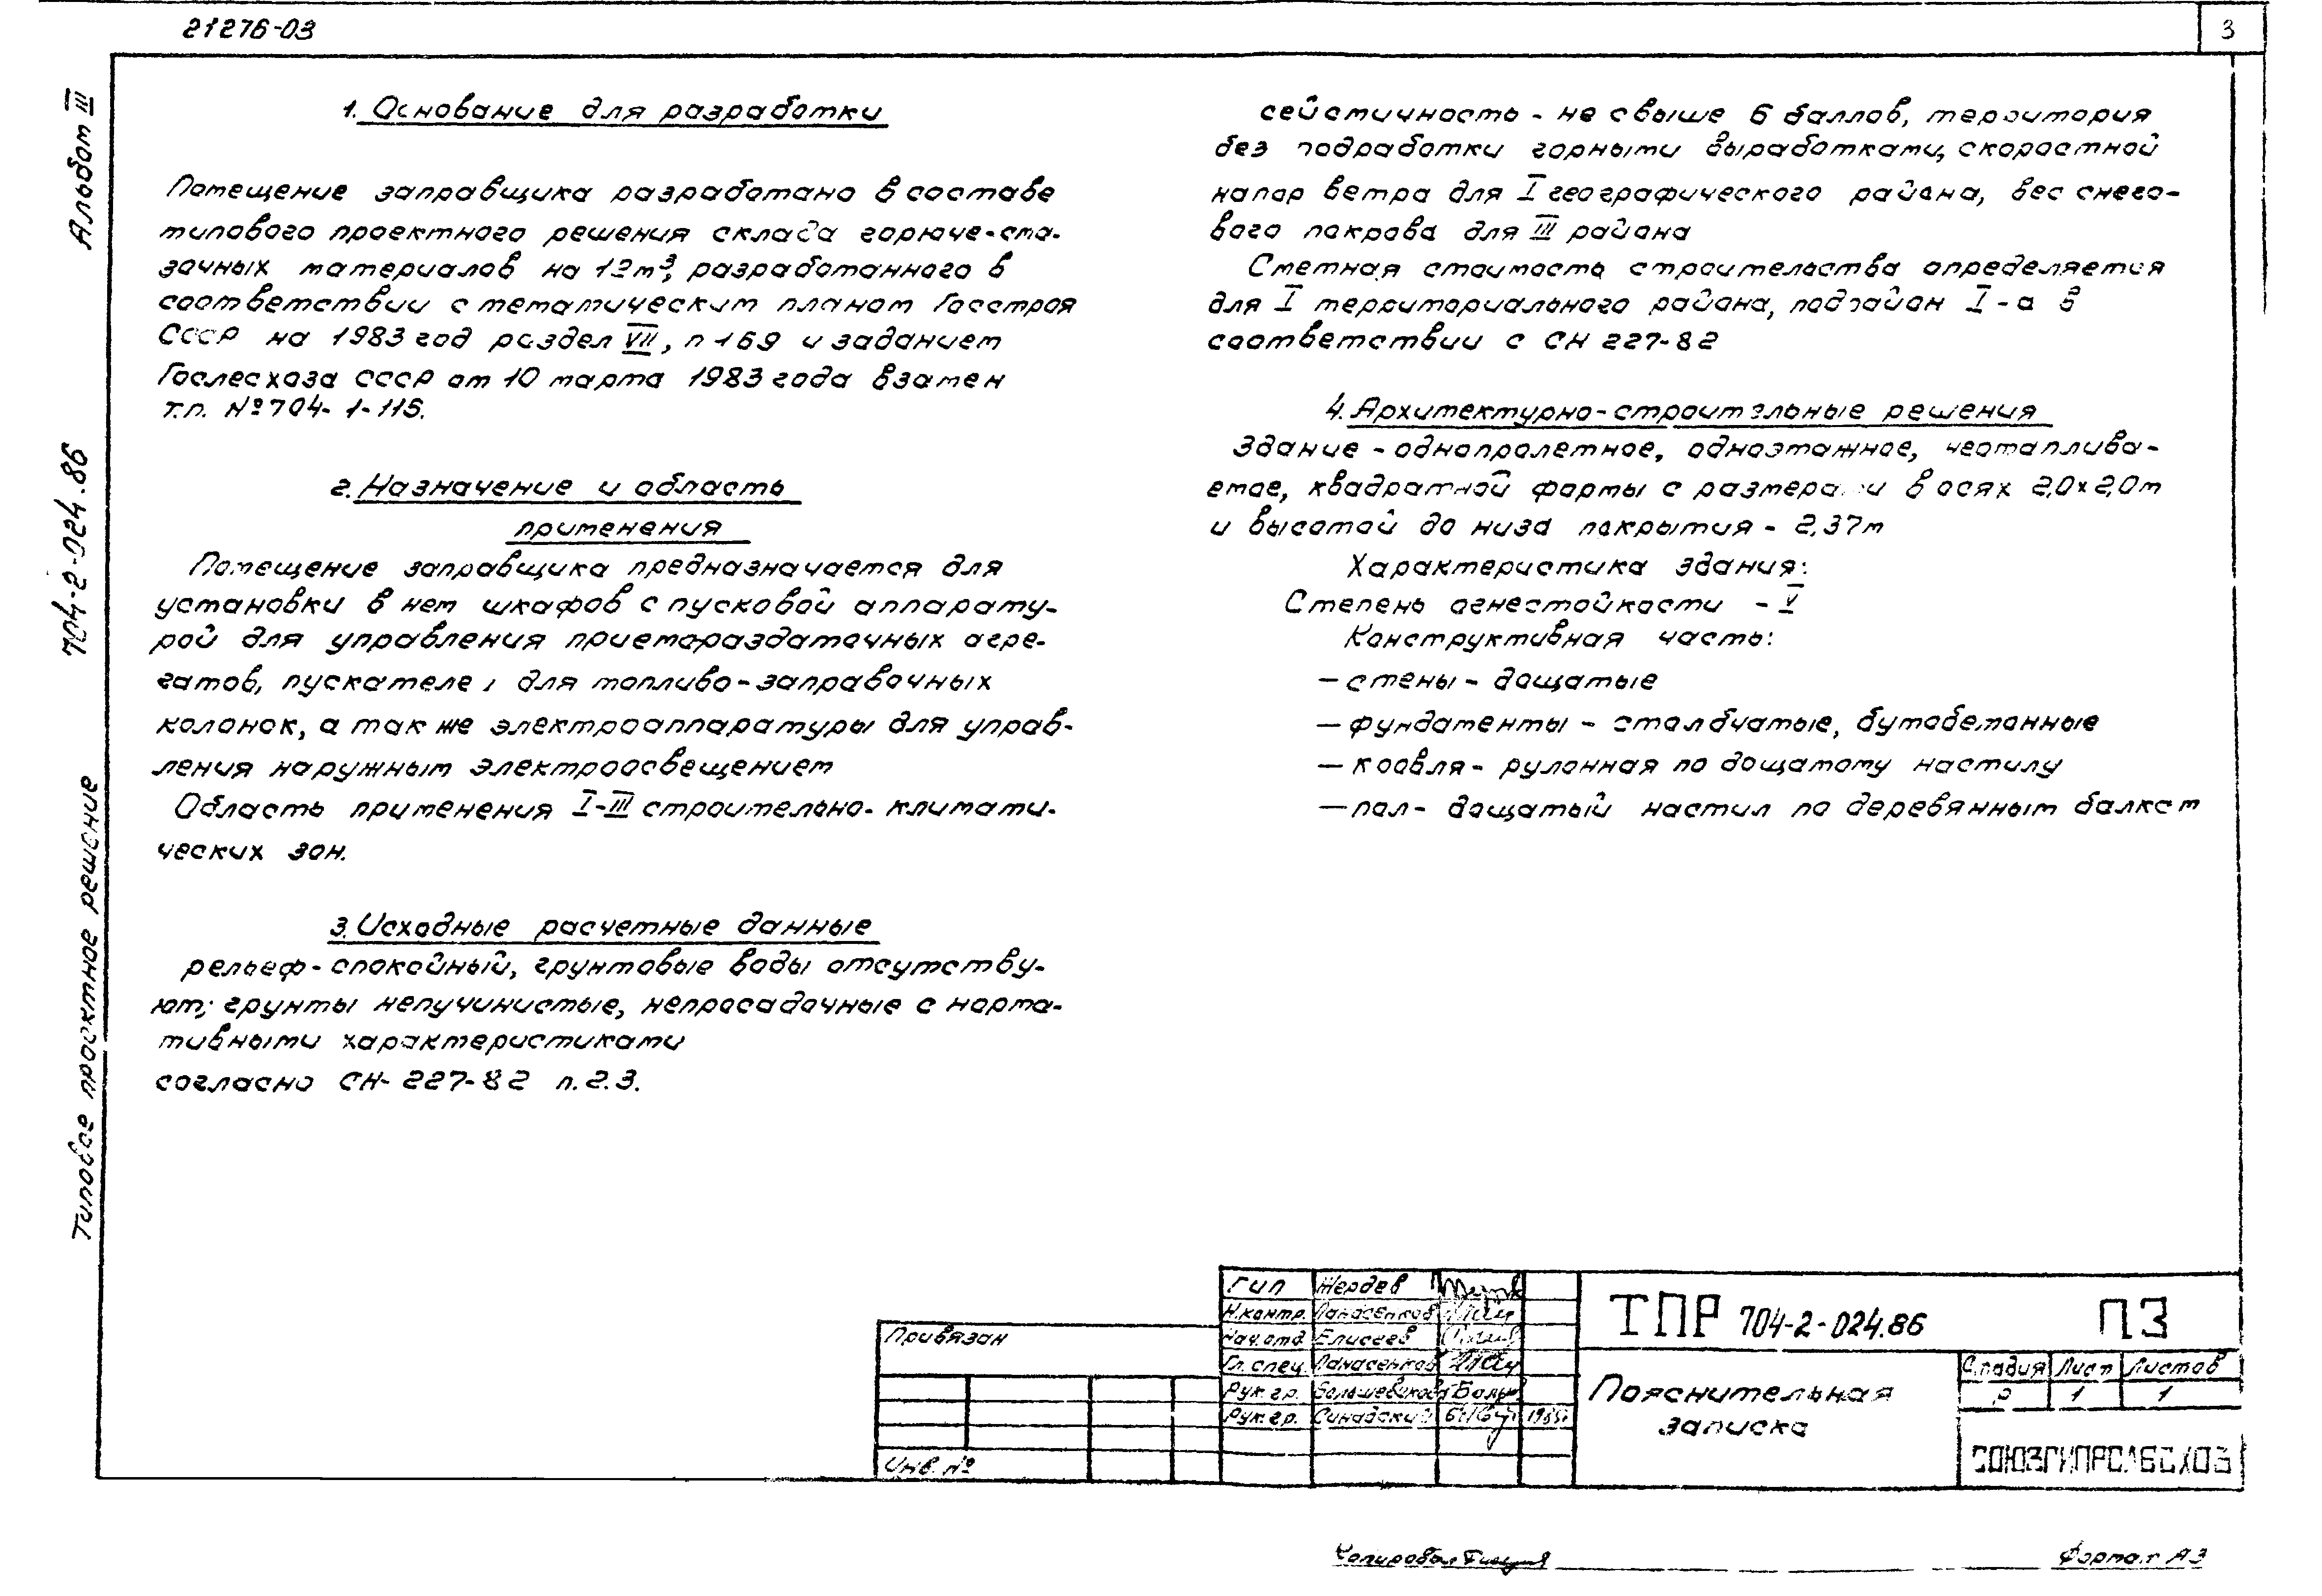 21276-03
3
Альбом III
704-2-024.86
Типовое проектное решение
1. Основание для разработки
Помещение заправщика разработано в составе
типового проектного решения склада горюче-сма-
зочных материалов на 12м³, разработанного в
соответствии с тематическим планом Госстроя
СССР на 1983 год раздел VII, п 169 и заданием
Гослесхоза СССР от 10 марта 1983 года взамен
т.п. №704-1-115.
2. Назначение и область
применения
Помещение заправщика предназначается для
установки в нем шкафов с пусковой аппарату-
рой для управления приемораздаточных агре-
гатов, пускателе , для топливо-заправочных
колонок, а так же электроаппаратуры для управ-
ления наружным электроосвещением
Область применения I-III строительно-климати-
ческих зон.
3. Исходные расчетные данные
рельеф - спокойный, грунтовые воды отсутству-
ют; грунты непучинистые, непросадочные с норма-
тивными характеристиками
согласно СН-227-82 п.2.3.
сейсмичность - не свыше 6 баллов, территория
без подработки горными выработками, скоростной
напор ветра для I географического района, вес снего-
вого покрова для III района
Сметная стоимость строительства определяется
для I территориального района, подрайон I-а в
соответствии с СН 227-82
4. Архитектурно-строительные решения
Здание - однопролетное, одноэтажное, неотапливо-
емое, квадратной формы с размерами в осях 2,0×2,0м
и высотой до низа покрытия - 2,37м
Характеристика здания:
Степень огнестойкости - V
Конструктивная часть:
— стены - дощатые
— фундаменты - столбчатые, бутобетонные
— кровля - рулонная по дощатому настилу
— пол - дощатый настил по деревянным балкам
Привязан
Инв. №
ГИП Жердев
Н.контр. Панасенков
Нач.отд. Елисеев
Гл.спец. Панасенков
Рук.гр. Большевикова
Рук.гр. Синадский 1985г
ТПР 704-2-024.86 ПЗ
Пояснительная
записка
Стадия Лист Листов
Р 1 1
СОЮЗГИПРОЛЕСХОЗ
Копировал
Формат А3